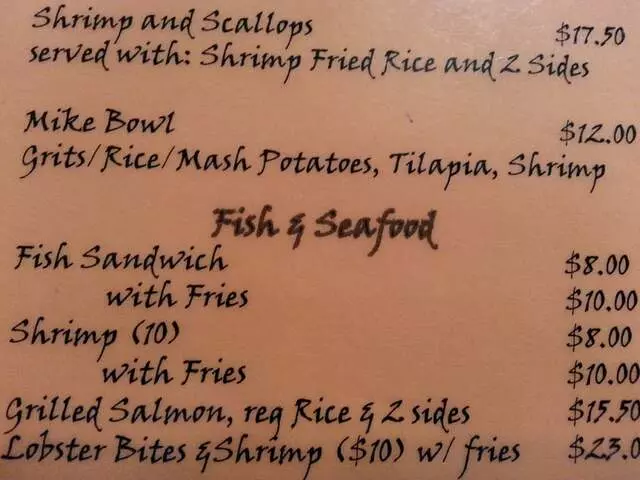 Shrimp and Scallops $17.50
served with: Shrimp Fried Rice and 2 Sides
Mike Bowl $12.00
Grits/Rice/Mash Potatoes, Tilapia, Shrimp
Fish & Seafood
Fish Sandwich $8.00
with Fries $10.00
Shrimp (10) $8.00
with Fries $10.00
Grilled Salmon, reg Rice & 2 sides $15.50
Lobster Bites &Shrimp ($10) w/ fries $23.0